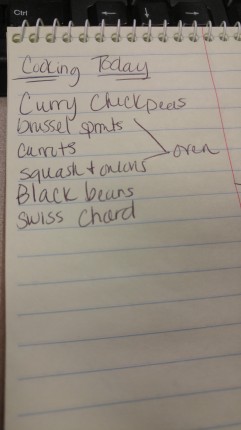 Ctrl
Cooking Today
Curry Chickpeas
brussel sprouts
carrots
squash + onions
oven
Black beans
Swiss chard